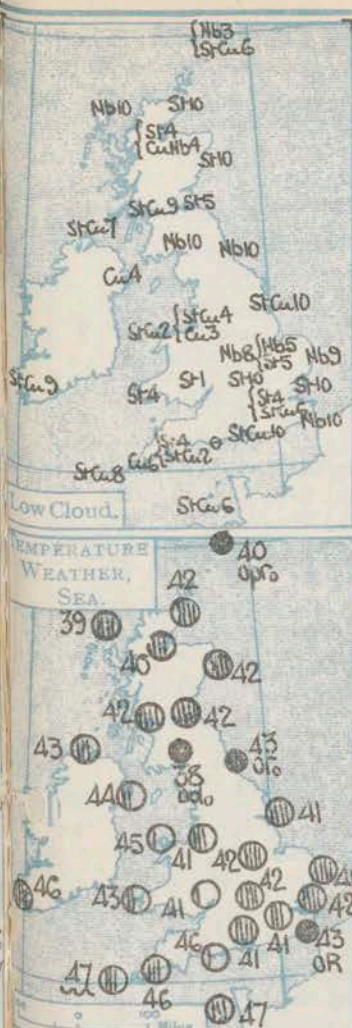 {Nb3
{StCu6
Nb10
St10
{St4
{CuNb4
St10
StCu9
St5
StCu7
Nb10
Nb10
Cu4
StCu10
{StCu4
StCu2 {Cu3
Nb8 {Nb5
{St5
Nb9
StCu9
St4
St1
St10
St10
{St4
Nb10
{St4
StCu10
Cu6 {StCu2
StCu8
Low Cloud.
StCu6
TEMPERATURE
WEATHER,
SEA.
40
42
39
40
42
42
42
43
38
43
44
41
45
41
42
46
43
41
42
42
46
41
41
43
OR
47
46
47